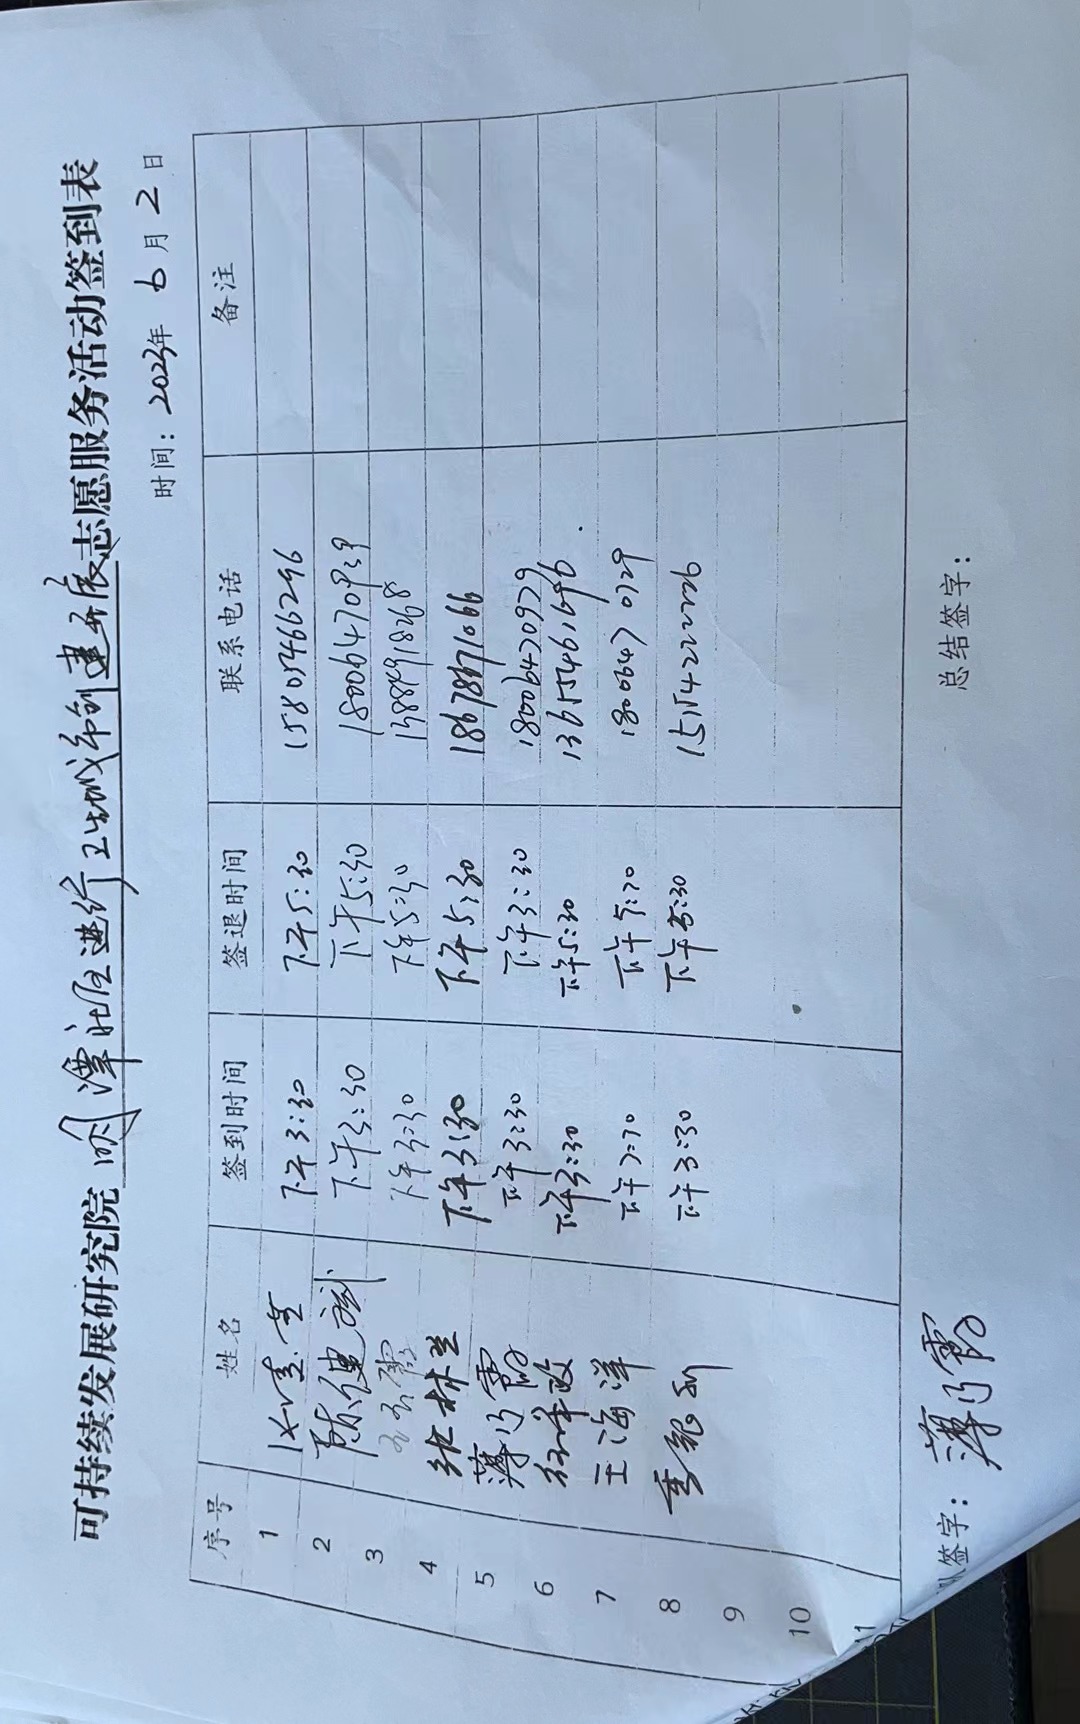 可持续发展研究院 明潭社区进行卫生城市创建开展志愿服务活动签到表
时间：2023年 6 月 2 日
序号 姓名 签到时间 签退时间 联系电话 备注
1 下午3:30 下午5:30 15805466296
2 陈健斌 下午3:30 下午5:30 18006470929
3 下午3:30 下午5:30
4 张林兰 下午3:30 下午5:30 18678671066
5 薄乃霞 下午3:30 下午3:30 18006470929
6 下午3:30 下午5:30 13655461696
7 王海洋 下午3:30 下午5:30 18006470729
8 下午3:30 下午5:30 15154222226
9
10
11
队签字： 薄乃霞 总结签字：